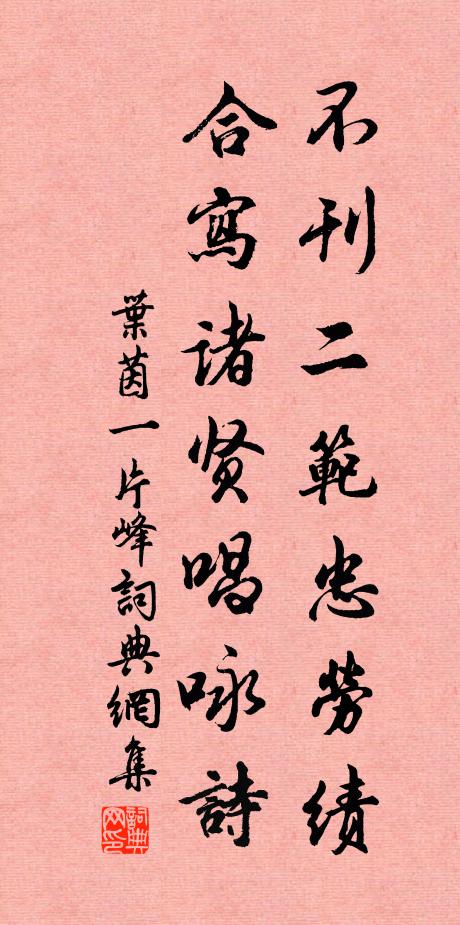 不刊二範忠勞績
合寫诸贤唱咏詩
葉茵一片峰詞典網集
詞典网印